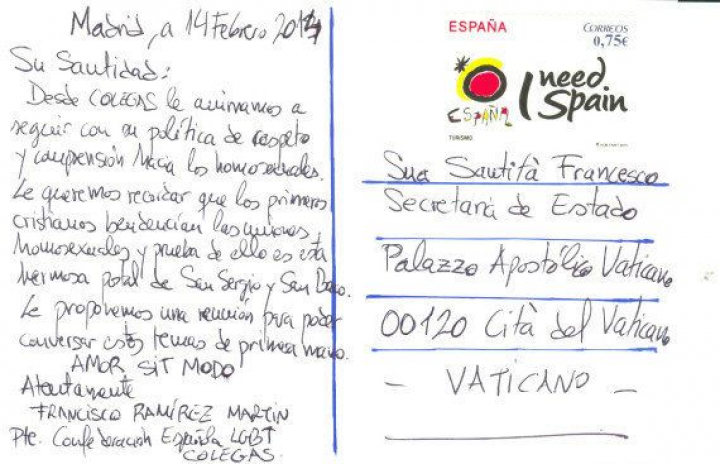 Madrid, a 14 Febrero 2014
Su Santidad:
Desde COLEGAS le animamos a
seguir con su política de respeto
y comprensión hacia los homosexuales.
Le queremos recordar que los primeros
cristianos bendencían las uniones
homosexuales y prueba de ello es esta
hermosa postal de San Sergio y San Baco.
Le proponemos una reunión para poder
conversar estos temas de primera mano.
AMOR SIT MODO
Atentamente
FRANCISCO RAMÍREZ MARTIN
Pte. Confederación Española LGBT
COLEGAS.
ESPAÑA
CORREOS
0,75€
I need
Spain
ESPAÑA
TURISMO
Sua Santità Francesco
Secretaria de Estado
Palazzo Apostólico Vaticano
00120 Cità del Vaticano
– VATICANO –